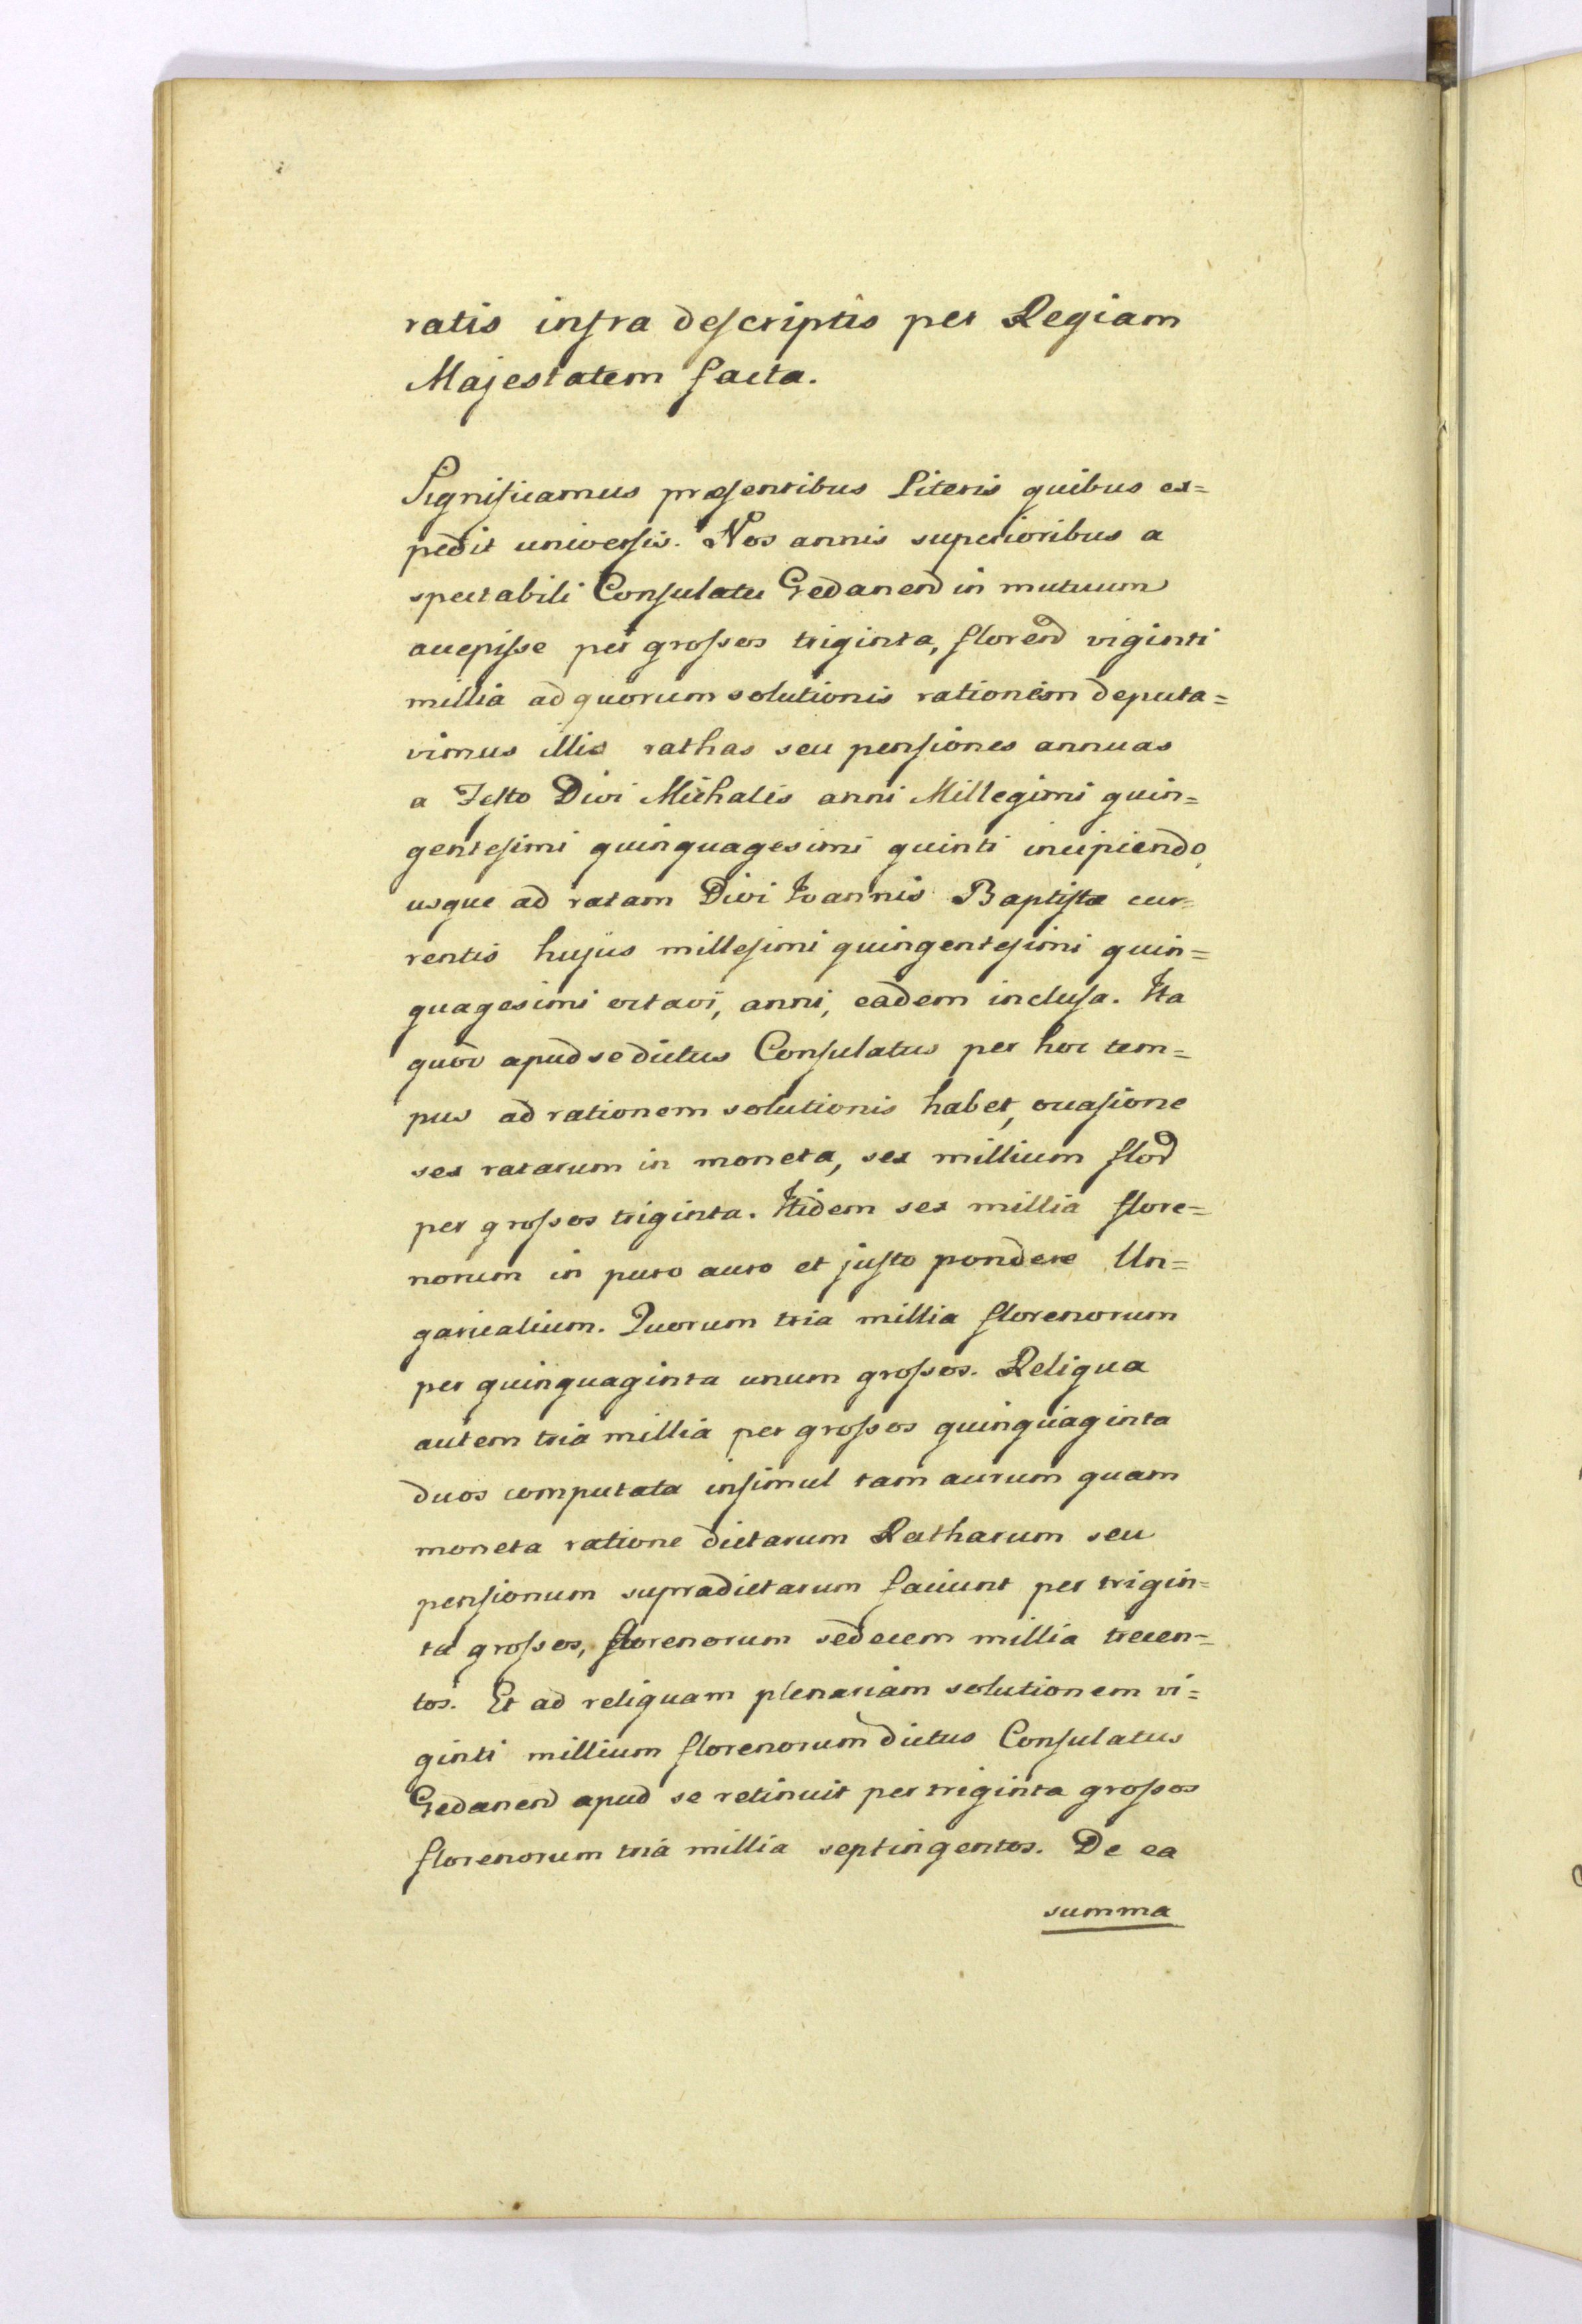 ratis infra descriptis per Regiam
Majestatem facta.
Significamus præsentibus Literis quibus ex=
pedit universis. Nos annis superioribus a
spectabili Consulatu Gedanen in mutuum
accepisse per grossos triginta, floren viginti
millia ad quorum solutionis rationem deputa=
vimus illis rathas seu pensiones annuas
a Festo Divi Michalis anni Millegimi quin=
gentesimi quinquagesimi quinti incipiendo,
usque ad ratam Divi Ioannis Baptistæ cur=
rentis hujus millesimi quingentesimi quin=
quagesimi octavi, anni, eadem inclusa. Ita
quod apud se dictus Consulatus per hoc tem=
pus ad rationem solutionis habet, occasione
sex ratarum in moneta, sex millium flor
per grossos triginta. Itidem sex millia flore=
norum in puro auro et justo pondere Un=
garicalium. Quorum tria millia florenorum
per quinquaginta unum grossos. Reliqua
autem tria millia per grossos quinquaginta
duos computata insimul tam aurum quam
moneta ratione dictarum Ratharum seu
pensionum supradictarum faciunt per trigin=
ta grossos, florenorum sedecem millia trecen=
tos. Et ad reliquam plenariam solutionem vi=
ginti millium florenorum dictus Consulatus
Gedanen apud se retinuit per triginta grossos
florenorum tria millia septingentos. De ea
summa